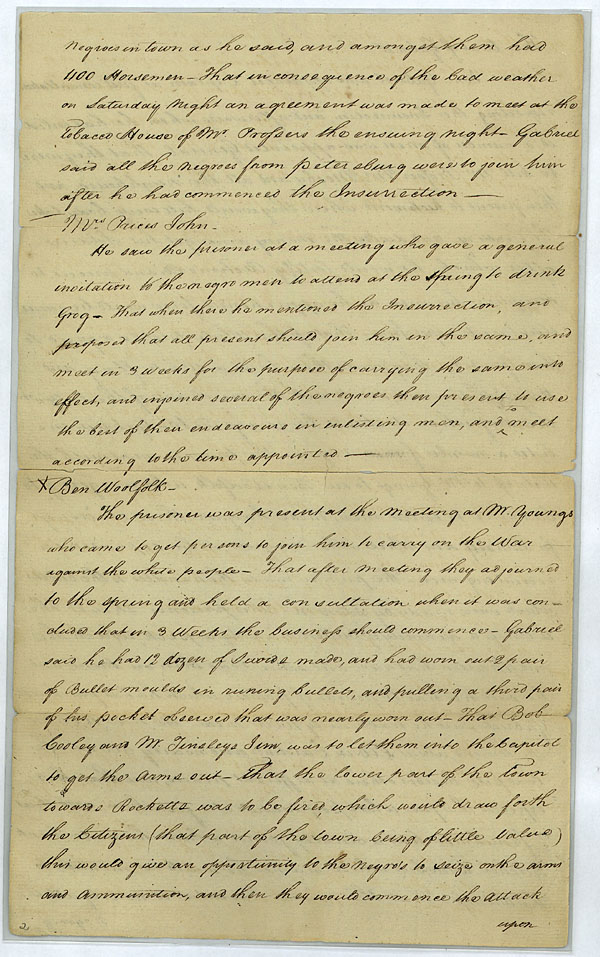 Negroes in town as he said, and amongst them had
400 Horsemen – That in consequence of the bad weather
on Saturday night an agreement was made to meet at the
Tobacco House of Mr. Prossers the ensuing night – Gabriel
said all the negroes from Petersburg were to join him
after he had commenced the Insurrection —
Mrs Prices John –
He saw the prisoner at a meeting who gave a general
invitation to the negro men to attend at the Spring to drink
Grog – That when there he mentioned the Insurrection, and
proposed that all present should join him in the same, and
meet in 3 weeks for the purpose of carrying the same into
effect, and injoined several of the negroes then present to use
the best of their endeavours in enlisting men, and to meet
according to the time appointed —
X Ben Woolfolk –
The prisoner was present at the meeting at Mr. Youngs
who came to get persons to join him to carry on the War
against the white people – That after meeting they adjourned
to the Spring and held a consultation when it was con-
cluded that in 3 Weeks the business should commence – Gabriel
said he had 12 dozen of Swords made, and had worn out 2 pair
of Bullet moulds in runing bullets, and pulling a third pair
of his pocket observed that was nearly worn out – That Bob
Cooley and Mr. Tinsleys Jim, was to let them into the Capitol
to get the arms out – That the lower part of the Town
towards Rocketts was to be fired, which would draw forth
the Citizens (that part of the town being of little value)
this would give an opportunity to the negro's to seize on the arms
and ammunition, and then they would commence the attack
upon
2